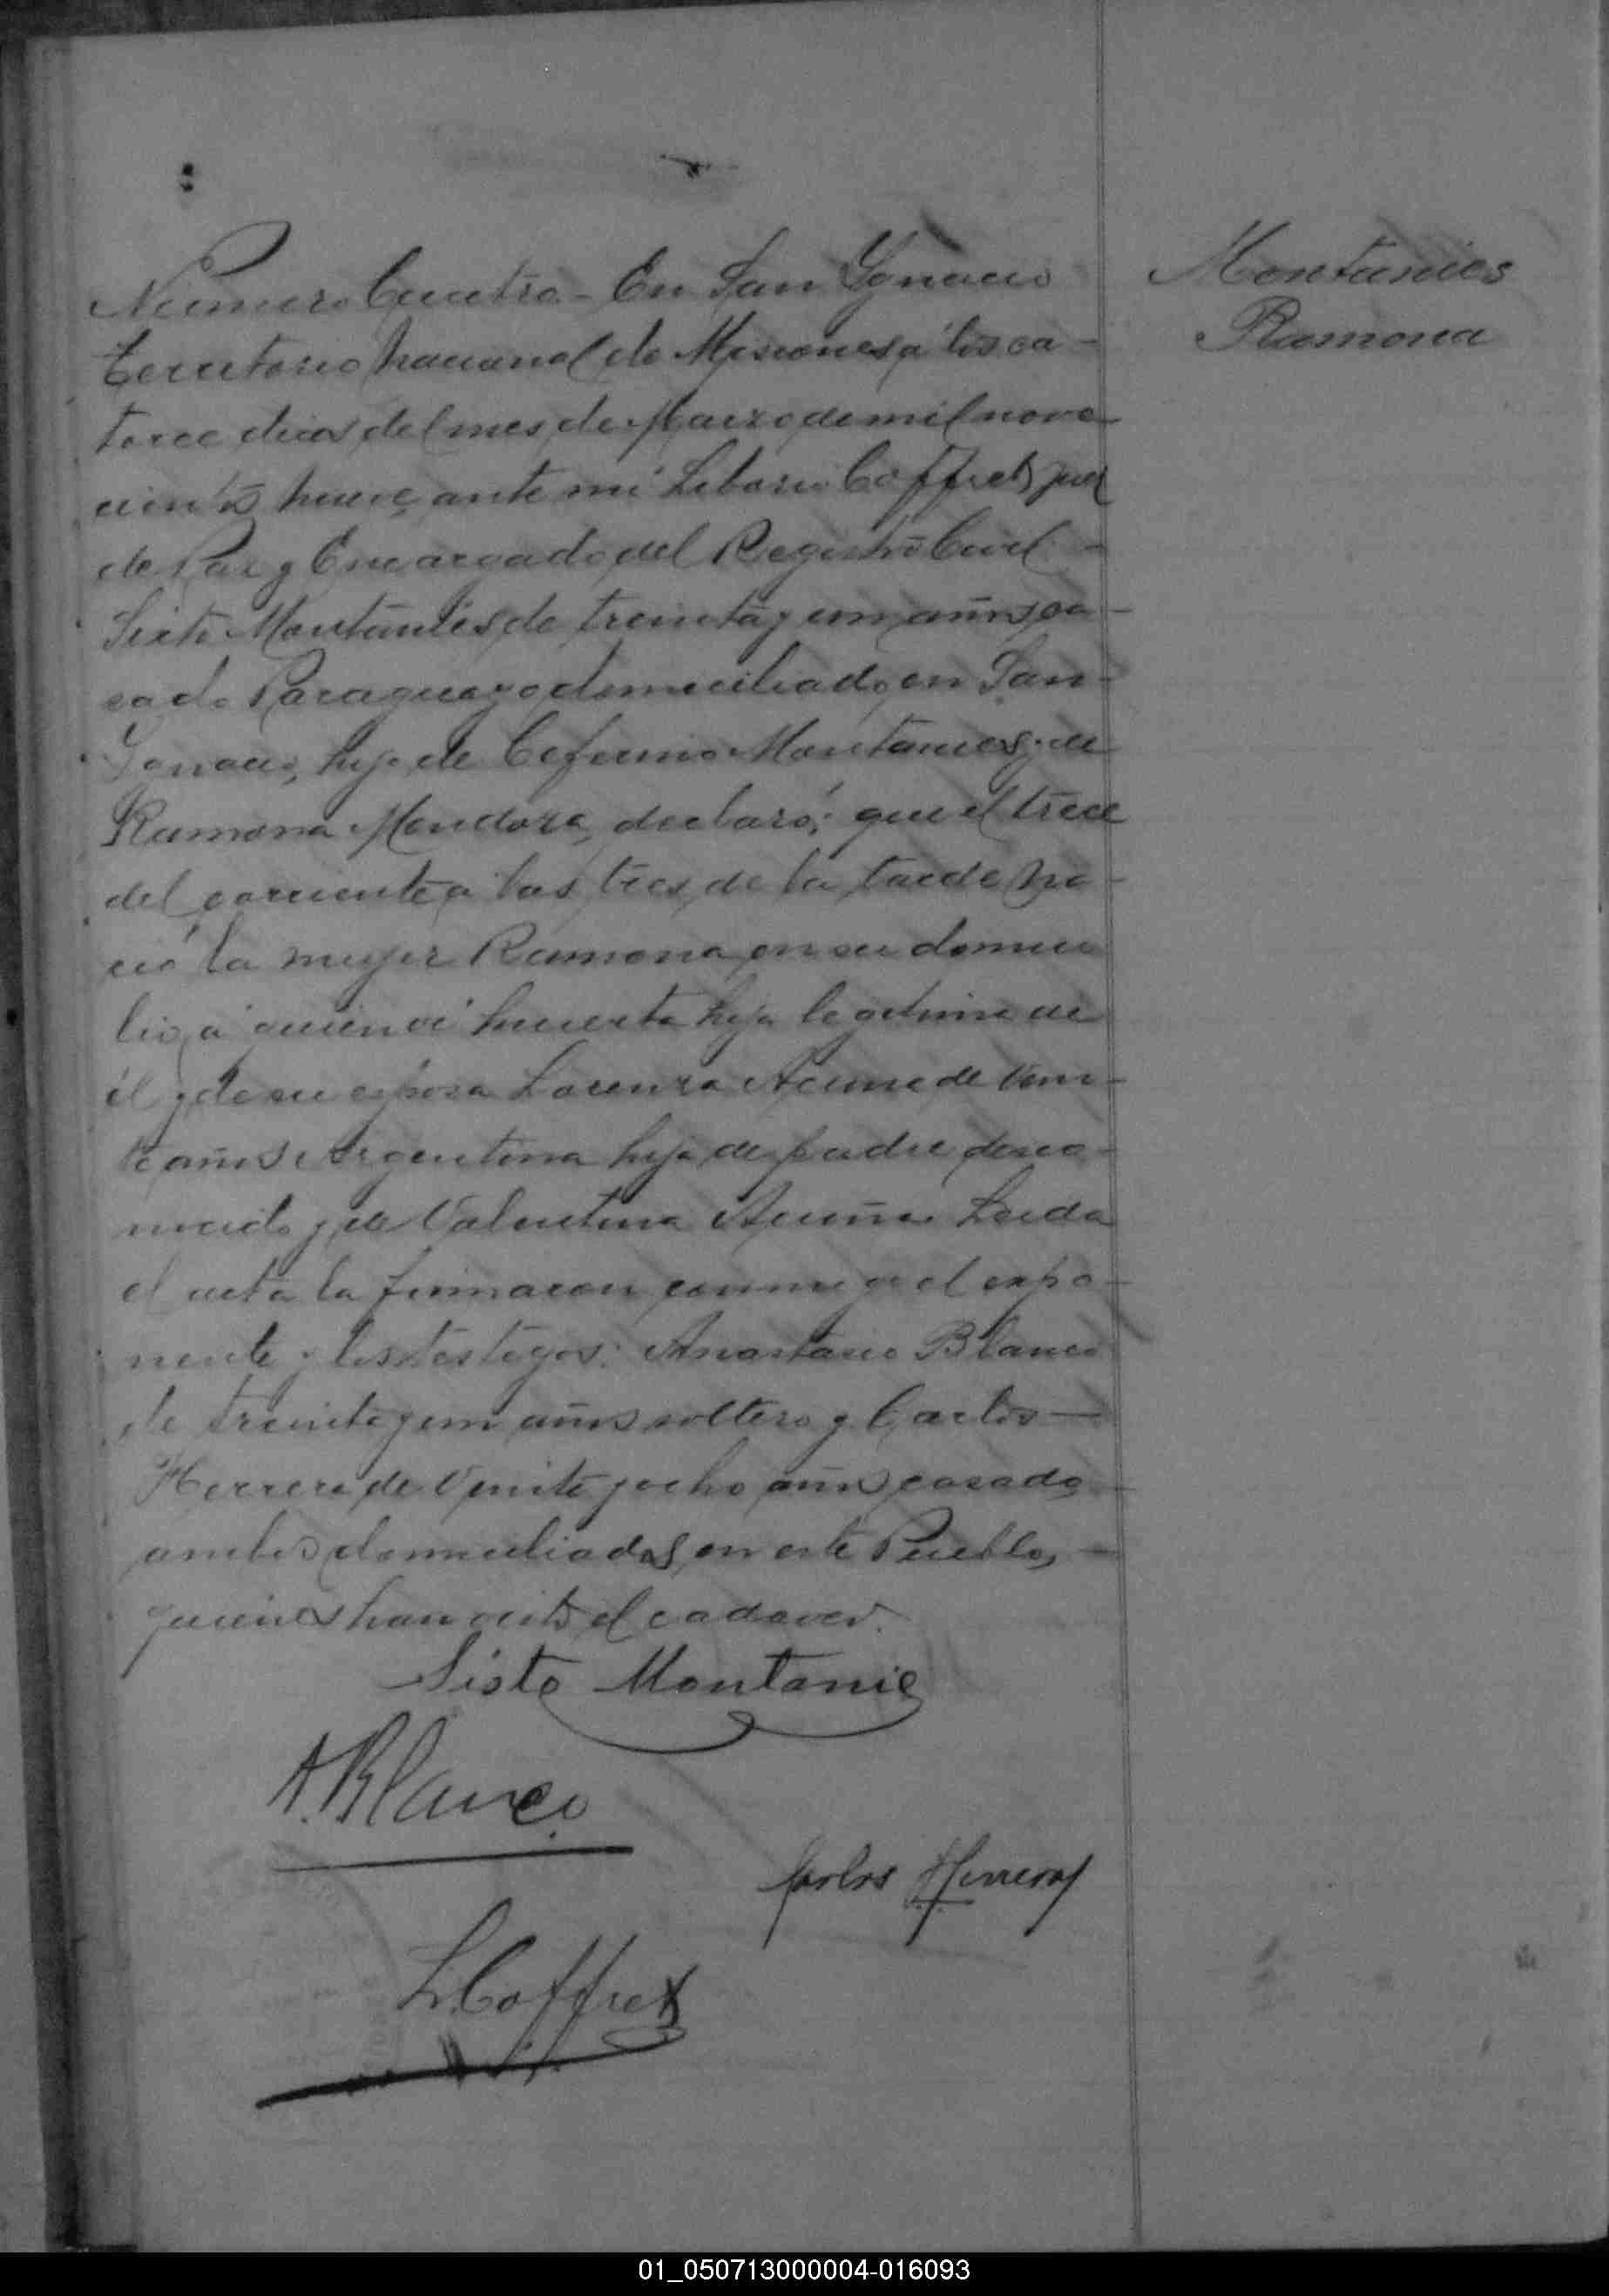 Numero Cuatro - En San Ygnacio
territorio nacional de Misiones, á los ca-
torce dias del mes de Marzo de mil nove
cientos nueve, ante mi Liborio Coffret, Juez
de Paz y Encargado del Registro Civil -
Sixto Montanies de treinta y un años, ca-
sado Paraguayo domiciliado en San
Ygnacio, hijo de Ceferino Montanies y de
Ramona Mendoza, declaró; que el trece
del corriente a las tres de la tarde na-
ció la mujer Ramona en su domici
lio, a quien ví muerta hija legitima de
él y de su esposa Lorenza Acuña de vein-
te años Argentina hija de padre desco-
nocido y de Valentina Acuña Leida
el acta la firmaron conmigo el expo-
nente y los testigos: Anastacio Blanco
de treinta y un años soltero y Carlos -
Herrera de veinte y ocho años casado
ambos domiciliados en este Pueblo, -
quienes han visto el cadaver.
Sisto Montanie
A. Blanco
Carlos Herrera
L. Coffret
Montanies
Ramona
01_050713000004-016093